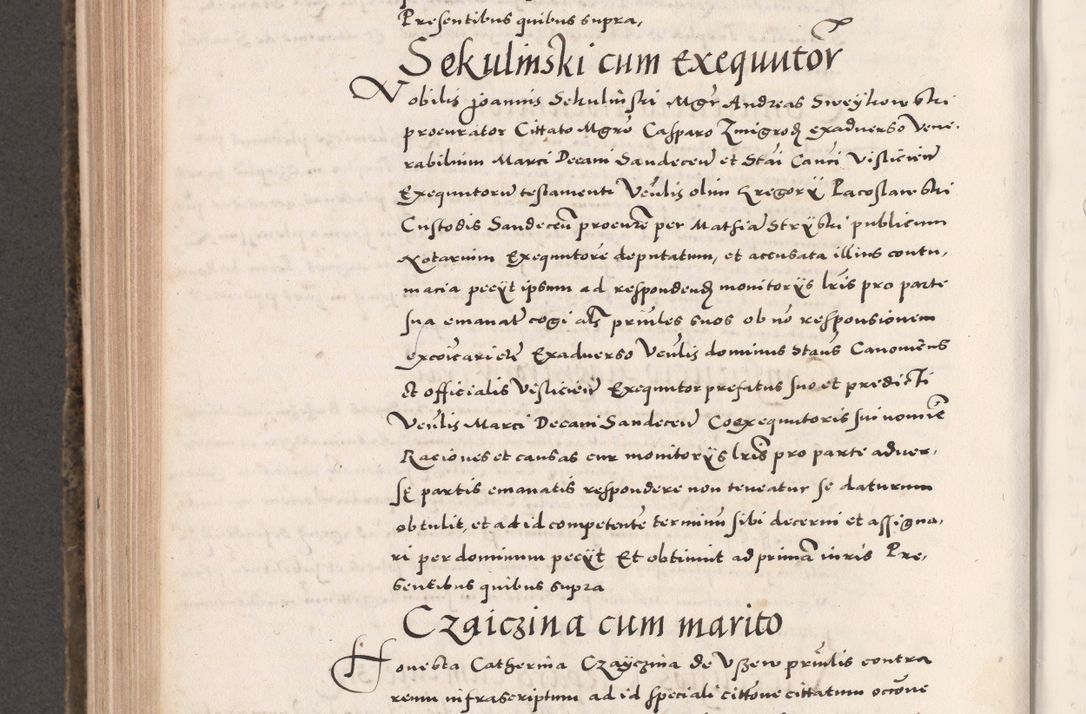 Presentibus quibus supra,
Sekulinski cum exequutor
Nobilis Joannis Sekulinski Mgr Andreas Sweykowski
procurator Cittato Mgro Casparo Zmigrod exadverso Vene,
rabilium Marci Decani Sandecen et Stai Canci Vislicien
Exequutoru testamenti Venlis olim Gregory Pacoslawski
Custodis Sandecen procente per Mathia Stryski publicum
Notarium Exequutore deputatum, et accusata illius contu,
macia pecyt ipsum ad respondend monitorys lris pro parte
sua emanat cogi als priules suos ob no responsionem
excoicari etc Exadverso Venlis dominus Staus Canonicus
et officialis Vislicien Exequutor prefatus suo et predicti
Venlis Marci Decani Sandecen Coexequutoris sui nomie
Raciones et causas cur monitorys lris pro parte adver,
se partis emanatis respondere non teneatur se daturum
obtulit, et ad id competente terminu sibi decerni et assigna,
ri per dominum pecyt Et obtinuit ad prima iuris Pre,
sentibus quibus supra
Czaiczina cum marito
Honesta Catherina Czayczina de Uszew priulis contra
reum infrascriptum ad id speciali cittone cittatum occone